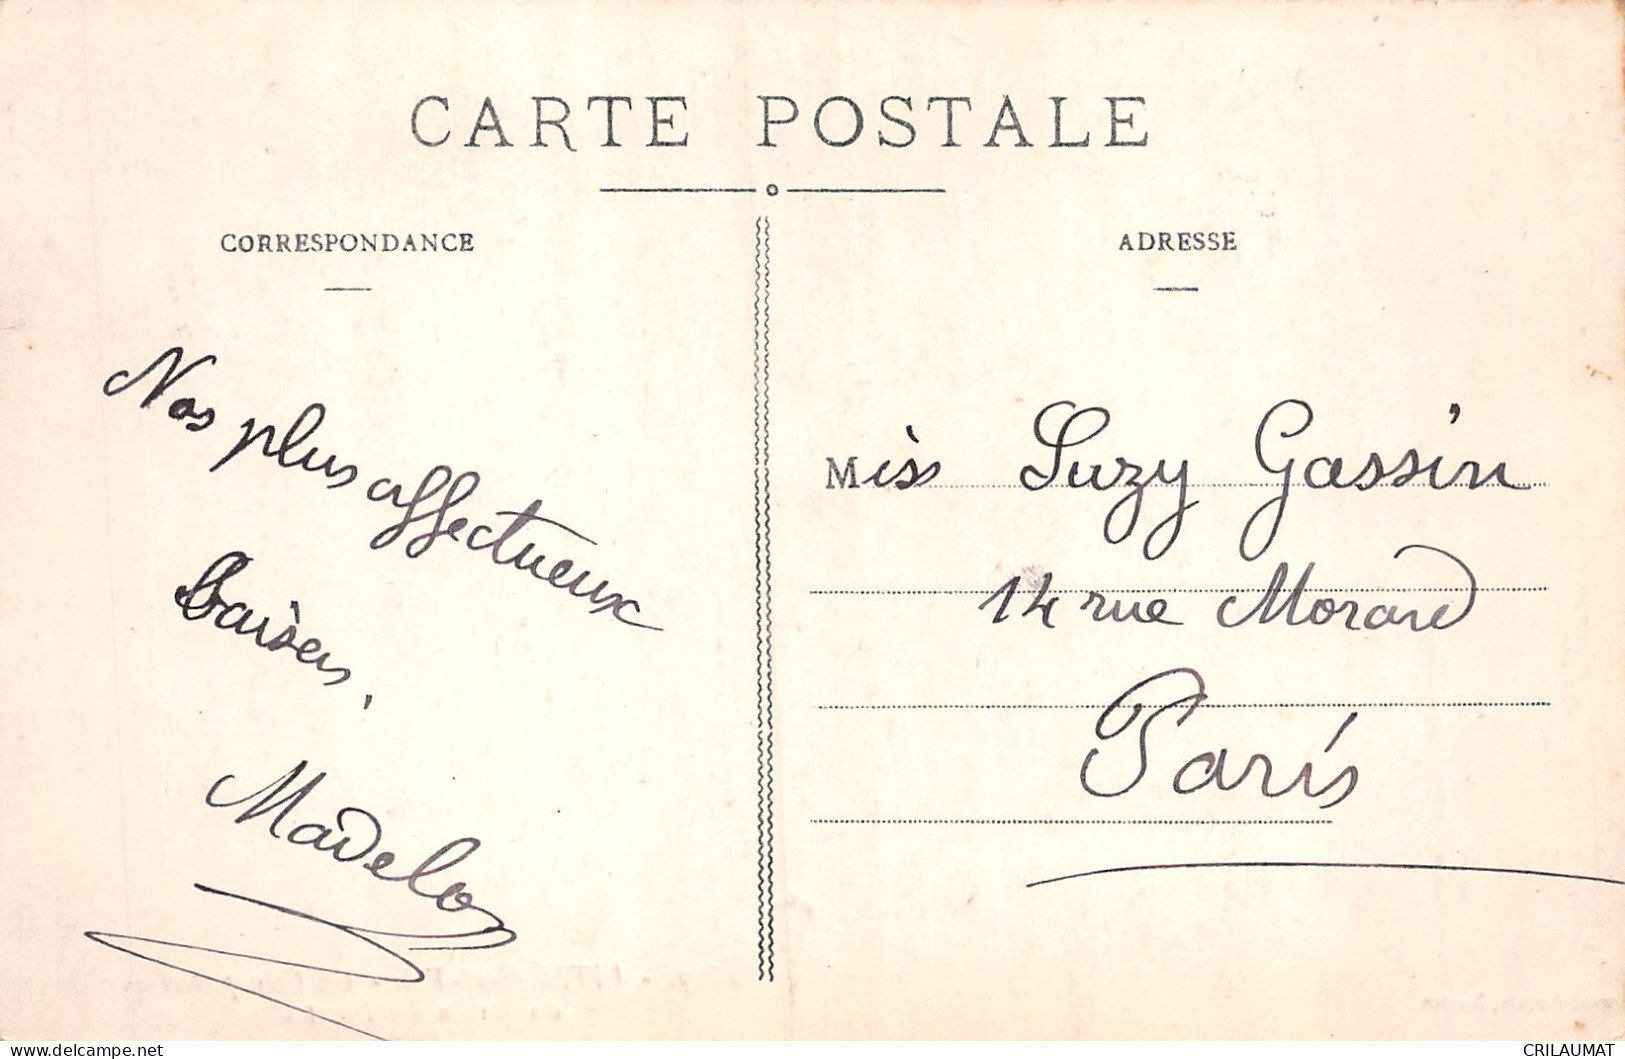 CARTE POSTALE
CORRESPONDANCE
ADRESSE
Nos plus affectueux
baisers.
Madelo
Miss Suzy Gassin
14 rue Morand
Paris
CRILAUMAT